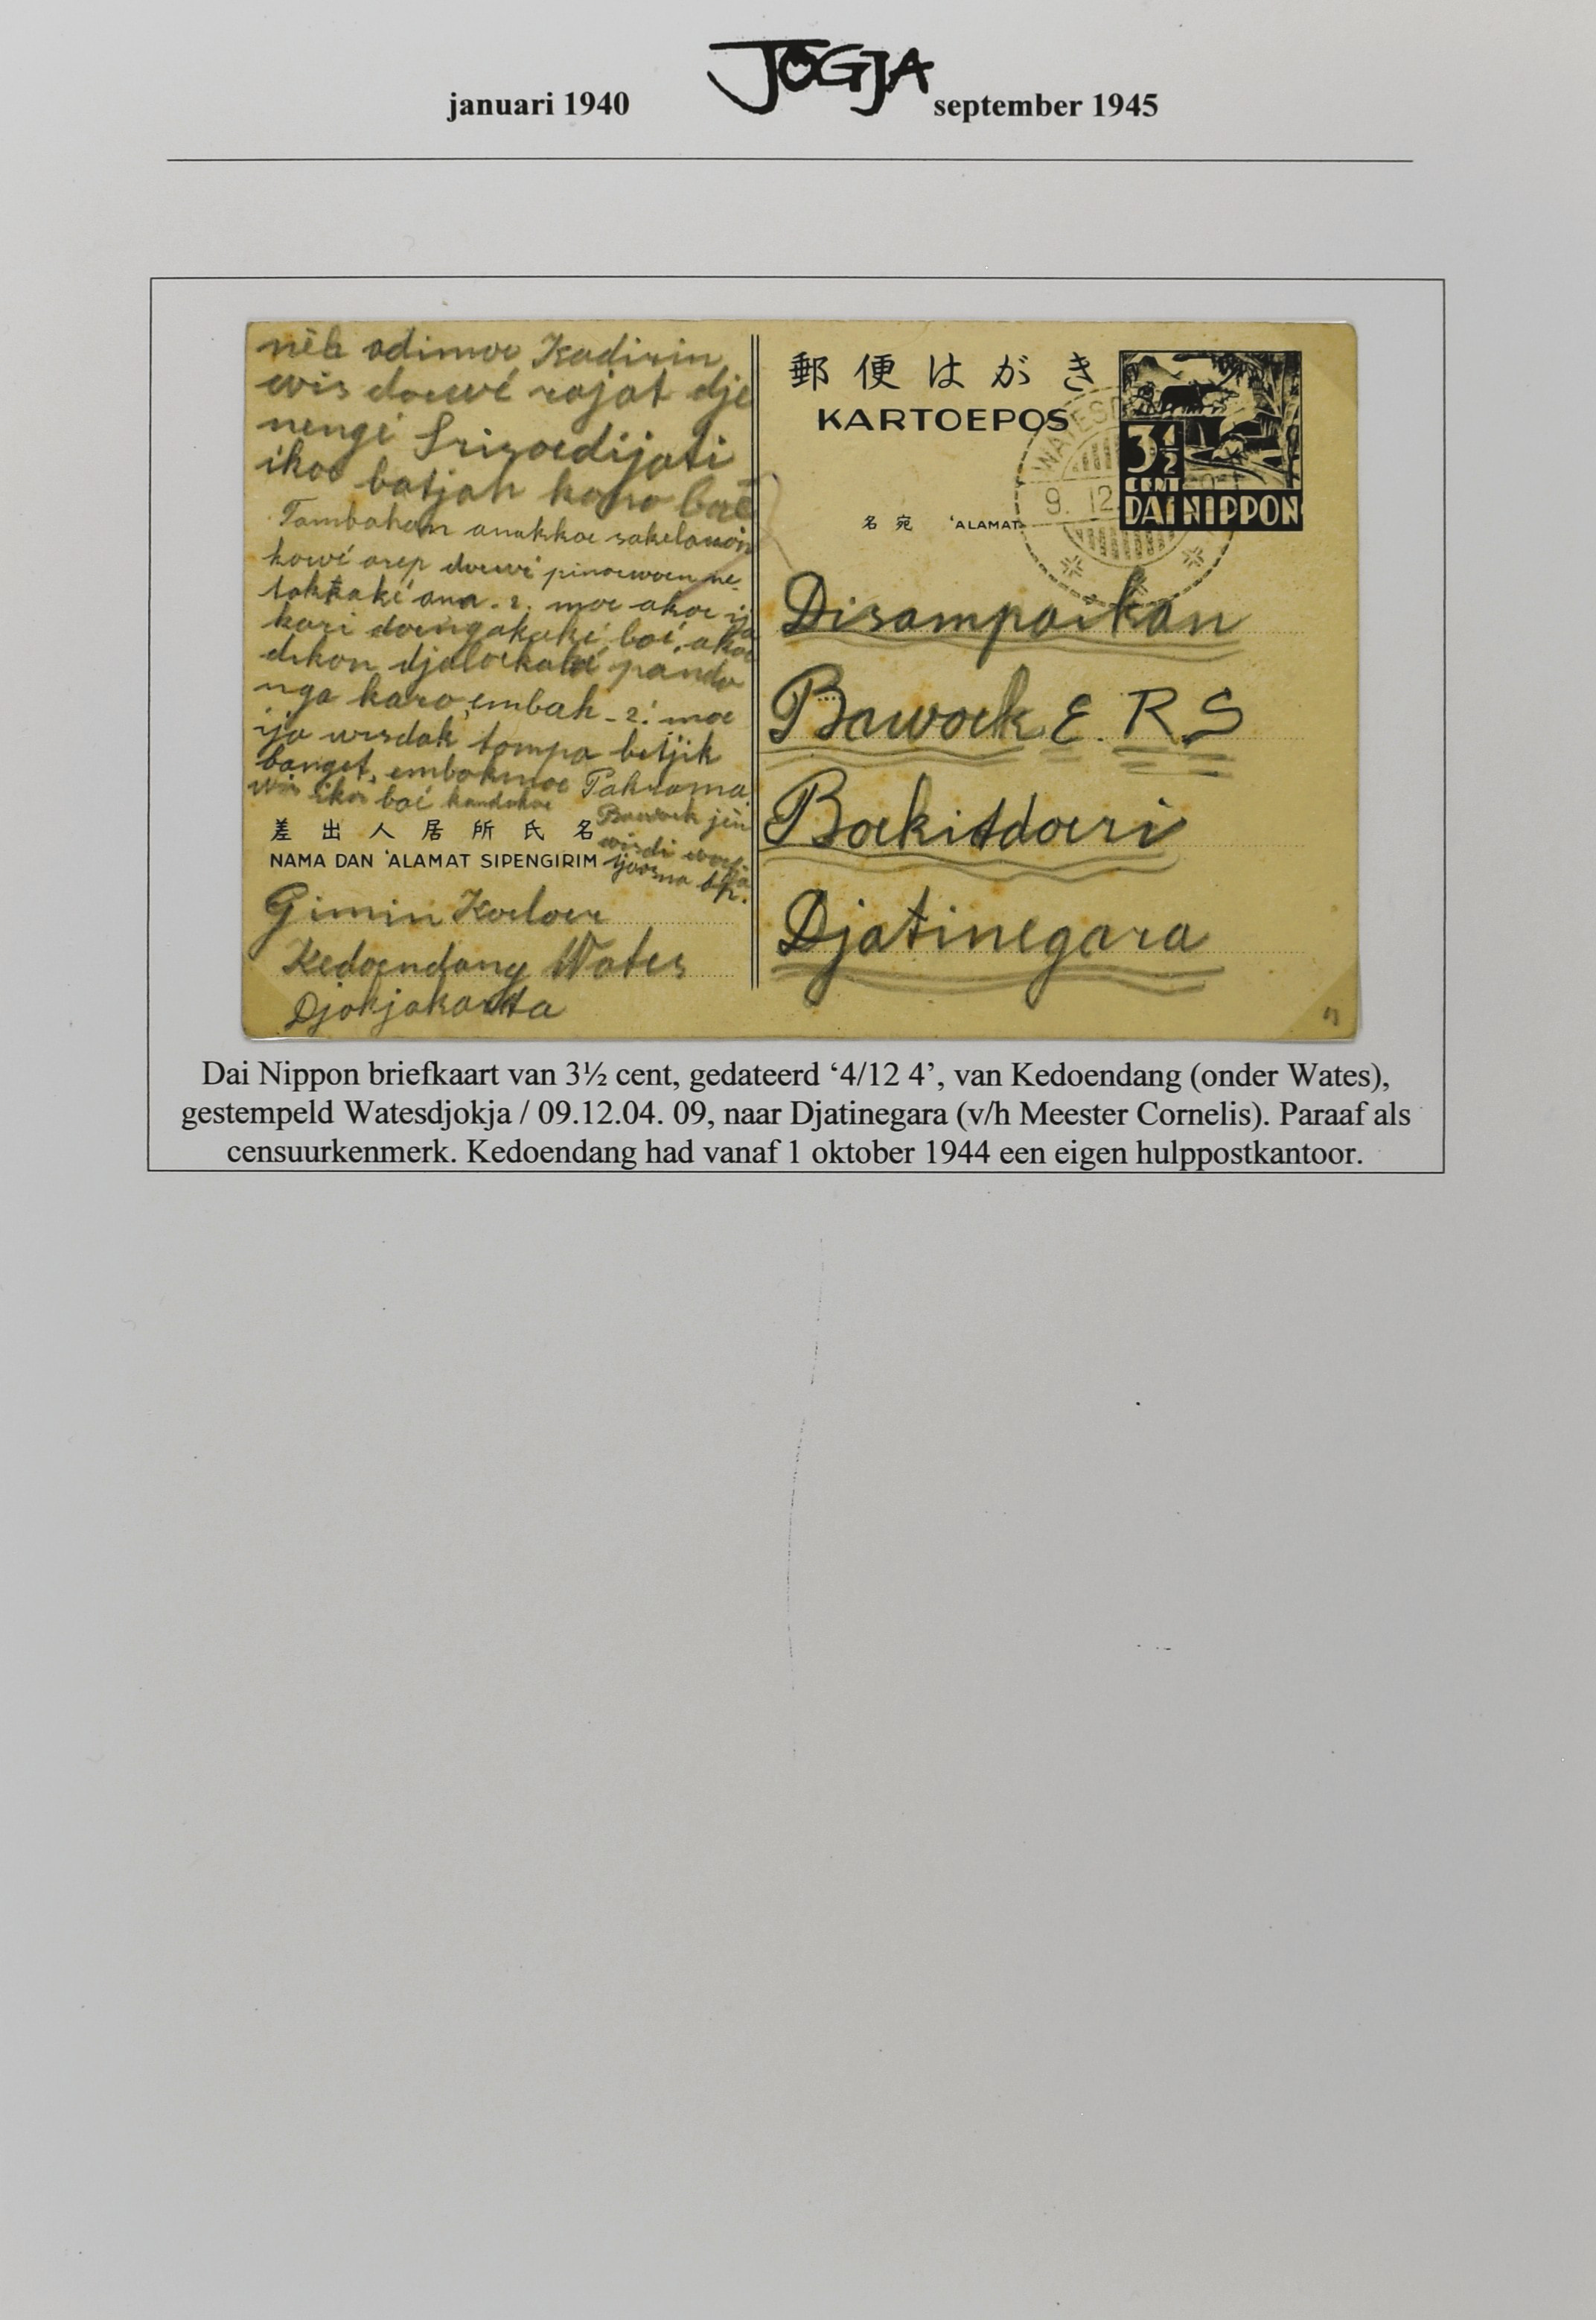 januari 1940 JOGJA september 1945
nèh adimoe Kadirin
wis doewé rajat dje
nengé Srisoedijati
ikoe batjah kono baé
Tambahan anakkoe sakelawon
kowé arep doewé pinoewoen ne-
laktaké ana-2. moe akoe ija
kari doengakaké baé, akoe
dikon djaloekaké pando
nga karo embah-2! moe
ija wisdak tompa betjik
banget, embakmoe Pakrama
wis ikoe baé kandakoe
Bawoek jèn
wisdi
差出人居所氏名
NAMA DAN 'ALAMAT SIPENGIRIM
Gimin Koeloer
Kedoendang Wates
Djokjakarta
郵便はがき
KARTOEPOS
3½
CENT
DAI NIPPON
WATESD
9. 12
名宛 'ALAMAT
Disampaikan
Bawoek E. R S
Boekitdoeri
Djatinegara
Dai Nippon briefkaart van 3½ cent, gedateerd ‘4/12 4’, van Kedoendang (onder Wates),
gestempeld Watesdjokja / 09.12.04. 09, naar Djatinegara (v/h Meester Cornelis). Paraaf als
censuurkenmerk. Kedoendang had vanaf 1 oktober 1944 een eigen hulppostkantoor.